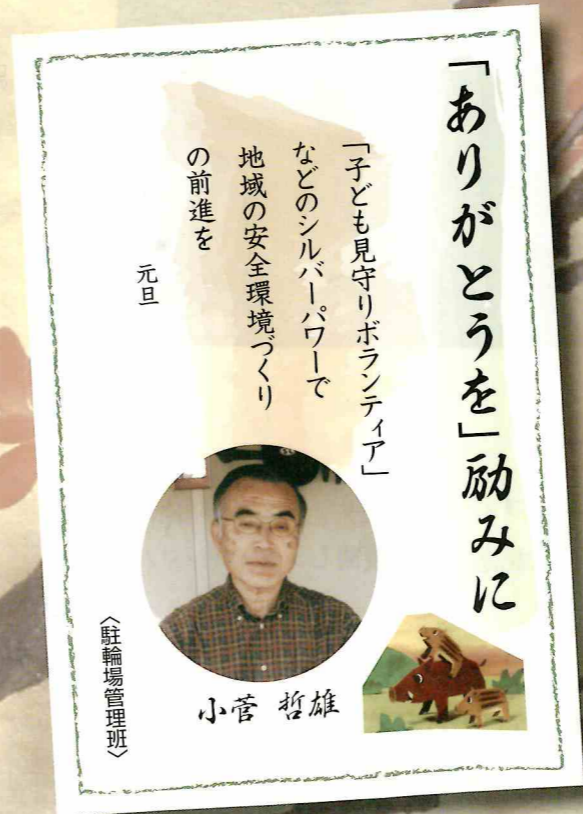 「ありがとうを」励みに
「子ども見守りボランティア」
などのシルバーパワーで
地域の安全環境づくり
の前進を
元旦
小菅 哲雄
〈駐輪場管理班〉